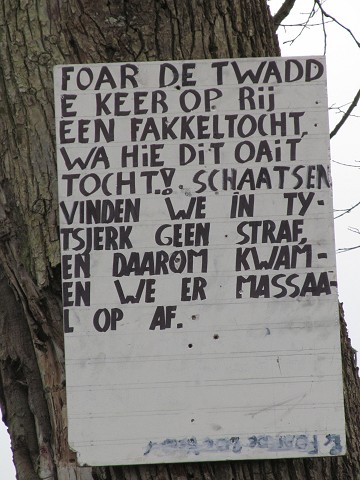 FOAR DE TWADD
E KEER OP RIJ
EEN FAKKELTOCHT,
WA HIE DIT OAIT
TOCHT! SCHAATSEN
VINDEN WE IN TY-
TSJERK GEEN STRAF,
EN DAAROM KWAM-
EN WE ER MASSAA-
L OP AF.